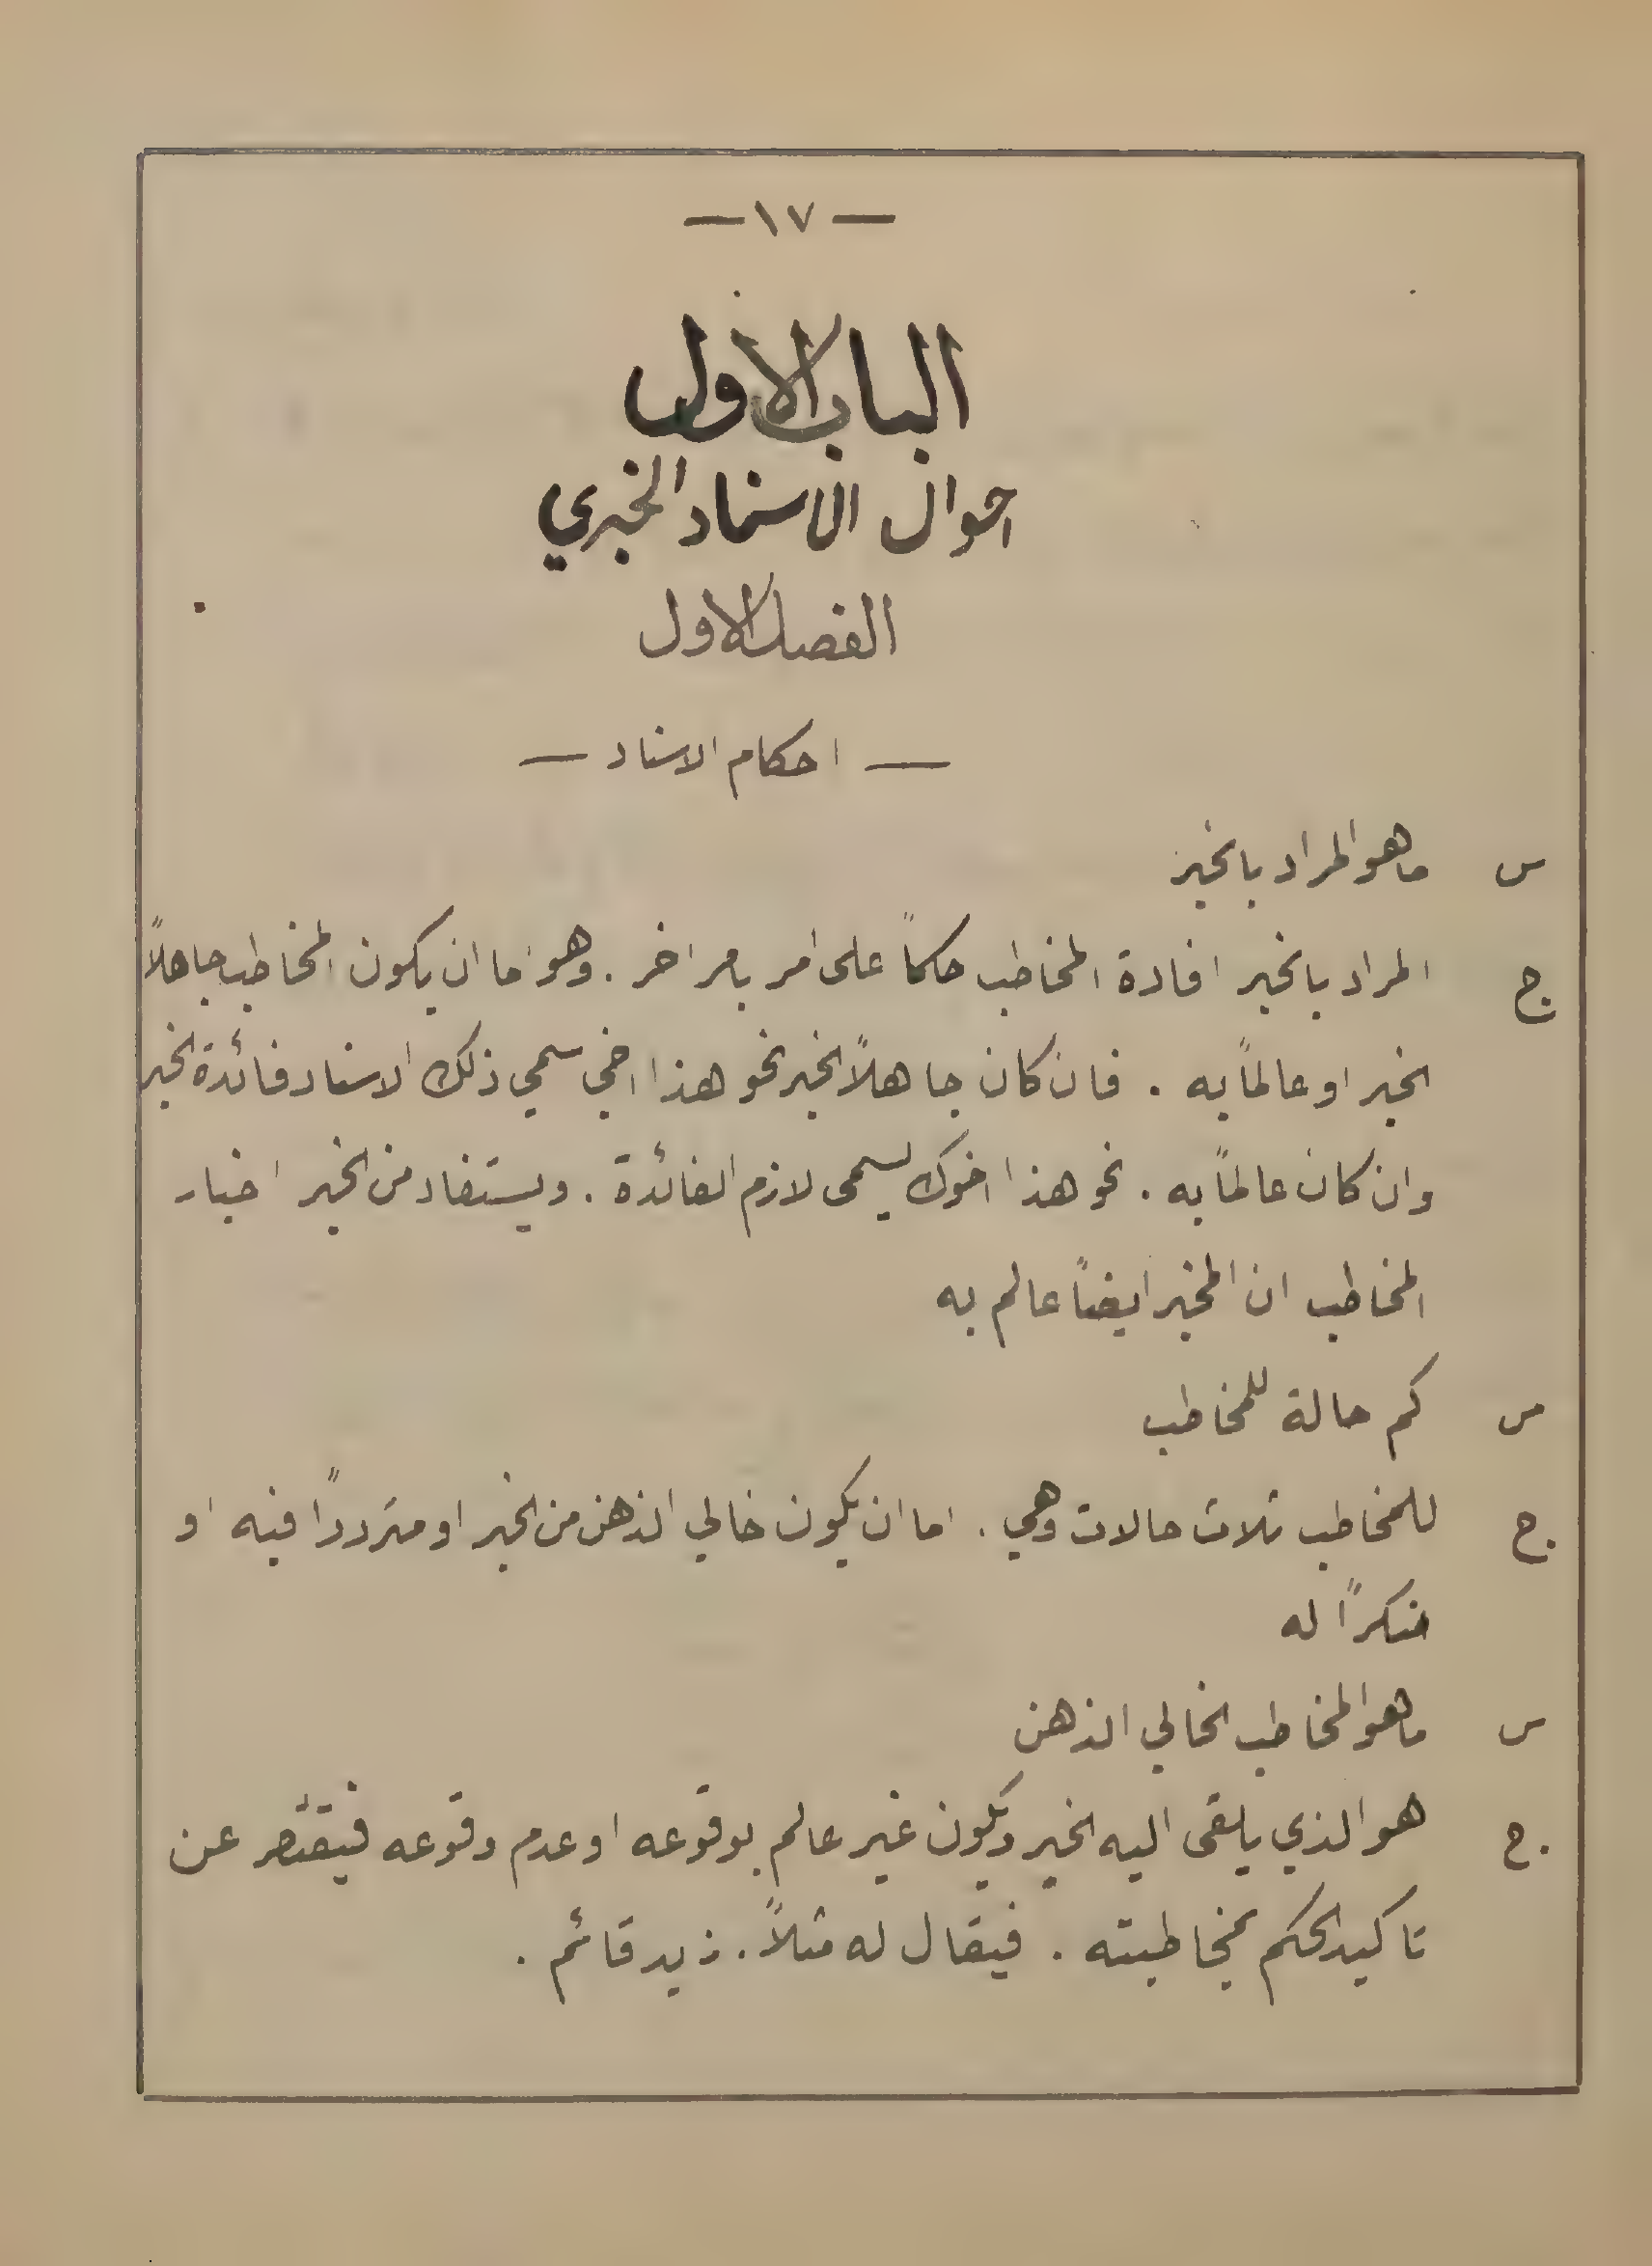 — ١٧ —
الباب الاول
احوال الاسناد الخبري
الفصل الاول
— احكام الاسناد —
س ما هو المراد بالخبر
ج المراد بالخبر افادة المخاطب حكماً على امر بامر اخر . وهو اما ان يكون المخاطب جاهلاً
الخبر او عالماً به . فان كان جاهلاً الخبر نحو هذا اخي سمي ذلك الاسناد فائدة الخبر
وان كان عالماً به . نحو هذا اخوك يسمى لازم الفائدة . ويستفاد من الخبر اخبار
المخاطب ان المخبر ايضاً عالم به
س كم حالة للمخاطب
ج للمخاطب ثلاث حالات وهي . اما ان يكون خالي الذهن من الخبر او متردداً فيه او
منكراً له
س ما هو المخاطب الخالي الذهن
ج هو الذي يلقى اليه الخبر ويكون غير عالم بوقوعه او عدم وقوعه فيقتصر عن
تاكيد الحكم بمخاطبته . فيقال له مثلاً . زيد قائم .